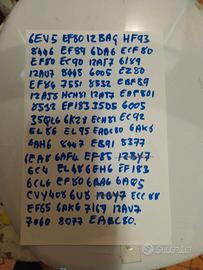 6EV5 EF80 12BA9 HF93
8446 EF89 6DA6 ECF80
EF80 EC90 12AF7 6189
12AU7 8448 6005 EZ80
EF84 7551 8532 EBF89
12A55 HCH81 12AU7 EBF801
8532 EF183 35D5 6005
35QL6 6K28 ECH81 EC92
EL86 EL95 EABC80 6AK6
6AH6 8047 EB91 8377
1EA8 6AF4 EF85 12BY7
6C4 EL48 6EH6 EF183
6CL6 EF80 6BA6 6AQ5
CVV408 6U8 12BY7 ECC88
EF85 6AK6 7167 12AV7
7060 8077 EABC80.
Subito.it